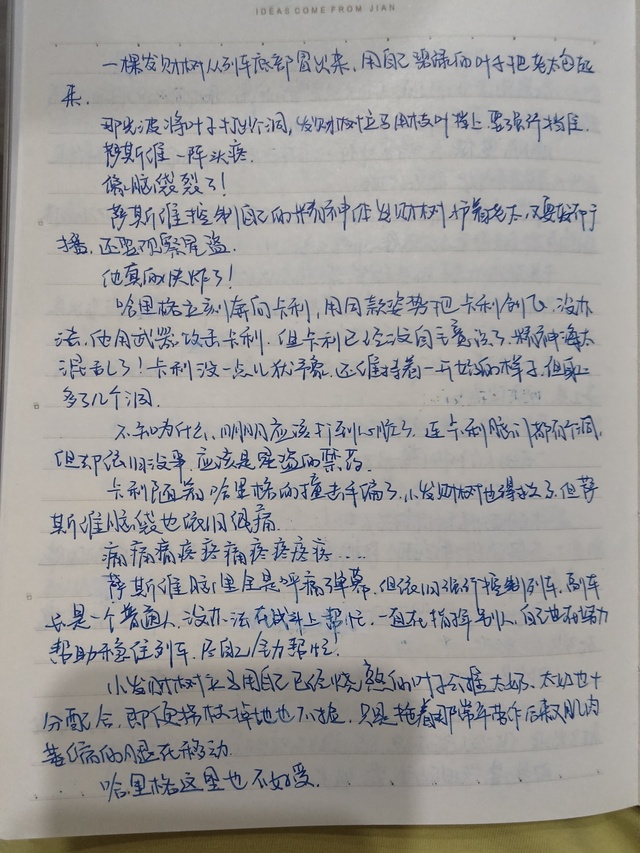 IDEAS COME FROM JIAN
一棵发财树从列车底部冒出来,用自己翠绿的叶子把老太包起
来.
那光波将叶子打出个洞,发财树立马用枝叶挡上,要强行挡住.
静斯维一阵头疼.
像脑袋裂了!
静斯维控制自己的精神体发财树护着老太,又要实即广
播,还要观察星盗.
他真的快炸了!
哈里格立刻奔向卡利,用同款姿势把卡利创飞,没办
法,他用武器攻击卡利.但卡利已经没自主意识了.精神海太
混乱了!卡利没一点儿犹豫,还维持着一开始的样子,但身上
多了几个洞.
不知为什么,明明应该打到心脏了,连卡利脑门都有个洞,
但却依旧没事,应该是星盗的禁药.
卡利随着哈里格的撞击手偏了,小发财树也得救了.但静
斯维脑袋也依旧很痛.
痛痛痛疼疼痛疼疼疼疼...
静斯维脑里全是呼痛弹幕,但依旧强行控制列车,副车
只是一个普通人,没办法在战斗上帮忙,一直在指挥别人,自己也在努力
帮助稳住列车,尽自己全力帮忙!
小发财树立马用自己已经烧的叶子太奶、太奶也十
分配合,即便拐杖掉地也不捡,只是拖着那常年劳作后肌肉
病的腿在移动.
哈里格这里也不好受.